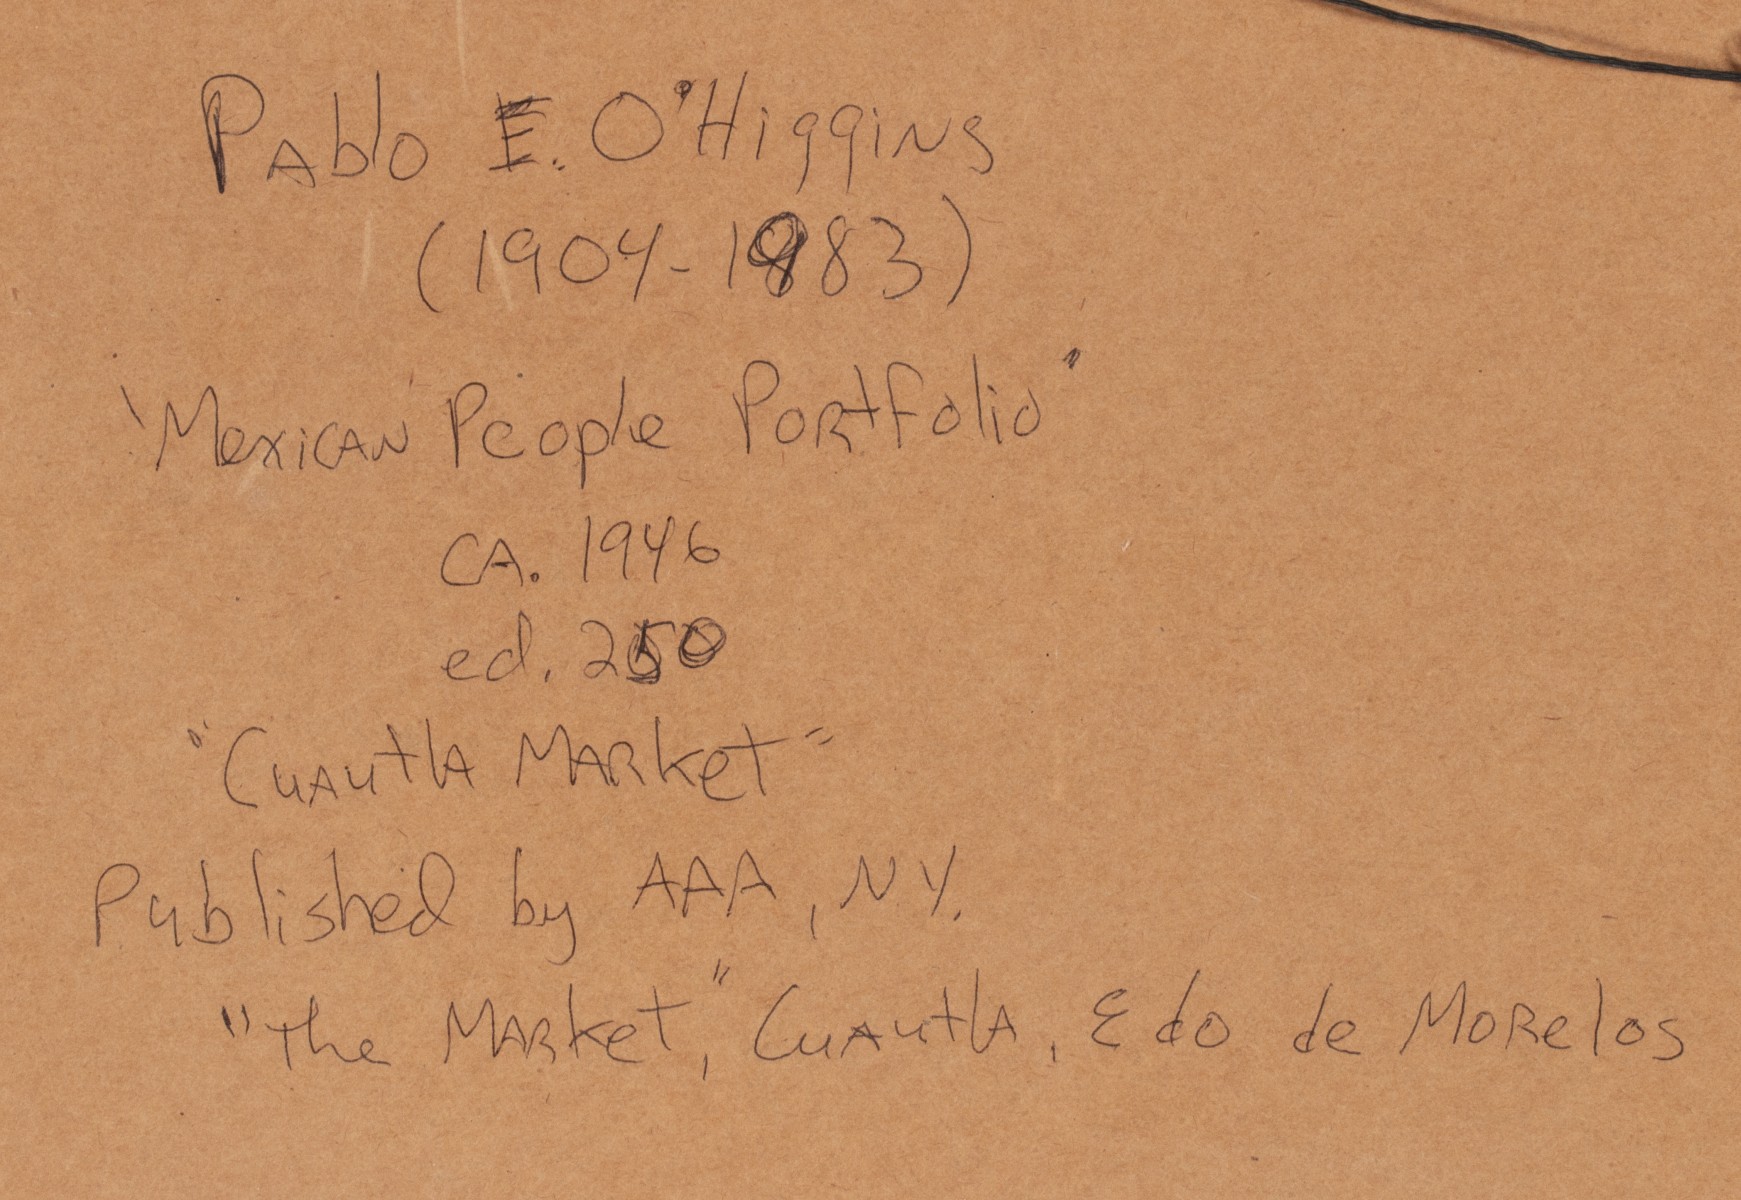 Pablo E. O'Higgins
(1904-1983)
"Mexican People Portfolio"
CA. 1946
ed. 250
"Cuautla Market"
Published by AAA, N.Y.
"The Market," Cuautla, Edo de Morelos